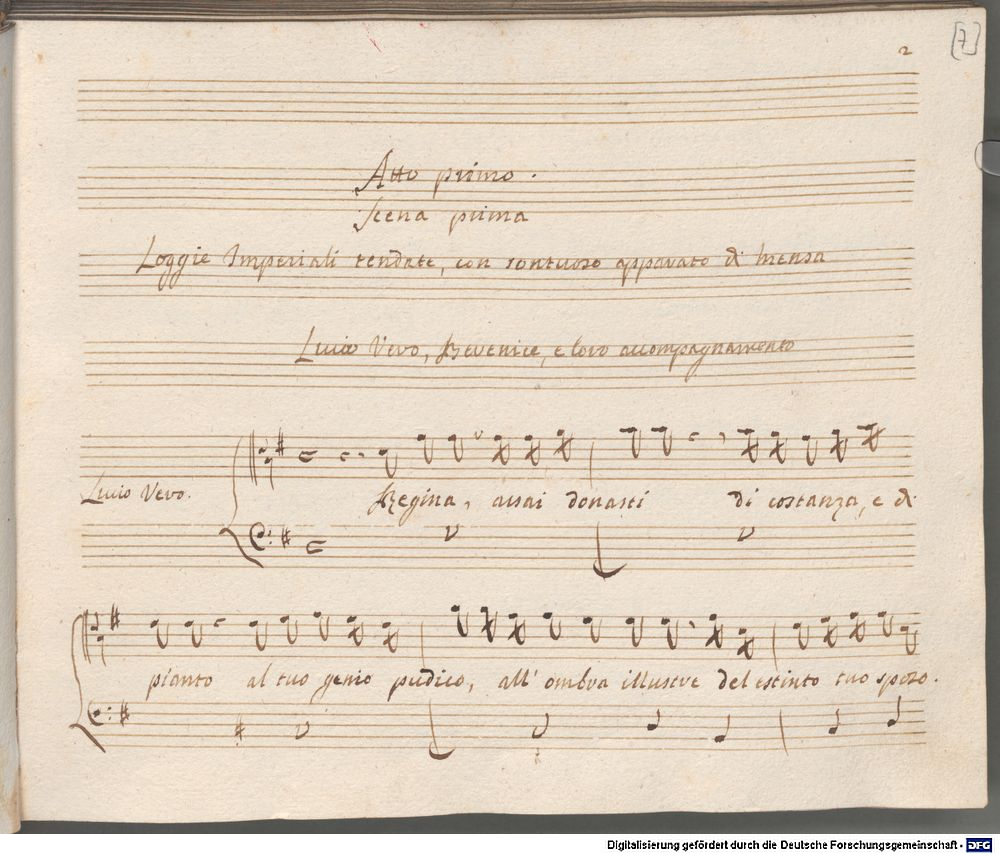 [7]
2
Atto primo.
Scena prima
Loggie Imperiali tendate, con sontuoso apparato di mensa
Lucio Vero, Berenice, e loro accompagnamento
Lucio Vero.
Regina, assai donasti di costanza, e di
pianto al tuo genio pudico, all'ombra illustre del estinto tuo sposo.
Digitalisierung gefördert durch die Deutsche Forschungsgemeinschaft - DFG